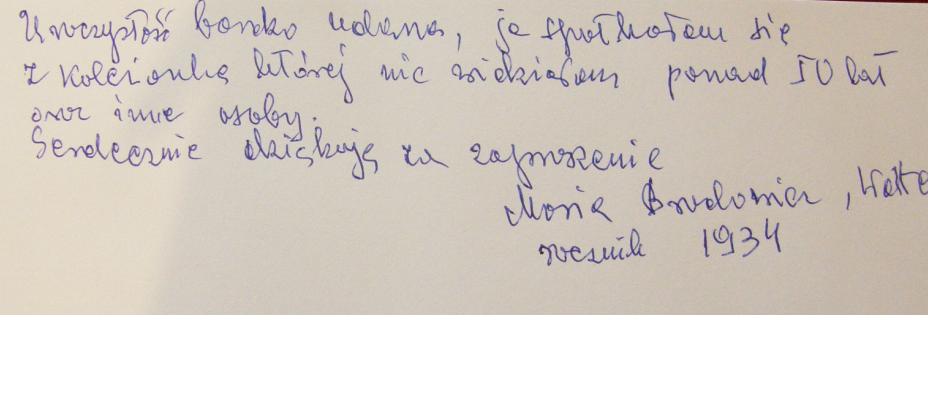 Uroczystość bardzo udana, ja spotkałam się
z koleżanką której nie widziałam ponad 50 lat
oraz inne osoby.
Serdecznie dziękuję za zaproszenie
Maria
rocznik 1934